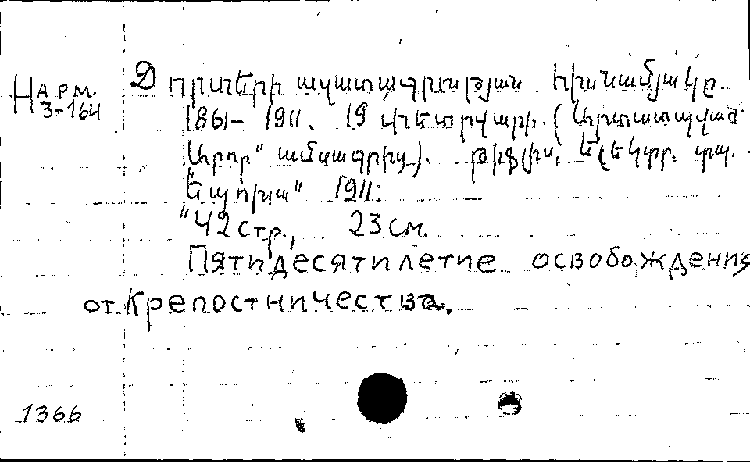 Нарм.
3-164
Ճորտերի ազատագրության հիսնամյակը.
1861– 1911. 19 փետրվարի. (Արտատպված
Արոր" ամսագրից). թիֆլիս, էլեկտր. տպ.
"Էպոխա" 1911.
42 стр., 23 см.
Пятидесятилетие освобождения
от крепостничества.
1366